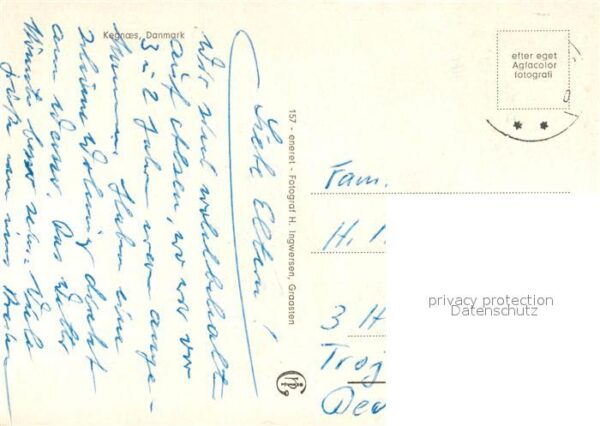 Kegnæs, Danmark
Liebe Eltern!
Wir sind wohlbehalten
auf Alsen, wo wir vor
3 u 2 Jahren waren ange-
kommen. Haben eine
schöne Wohnung direkt
am Wasser. Das Wetter
könnte besser sein. Viele
Grüße von uns
157 - eneret - Fotograf H. Ingwersen, Graasten
efter eget
Agfacolor
fotografi
Fam.
H. I
3 H
Troj
Deu
privacy protection
Datenschutz